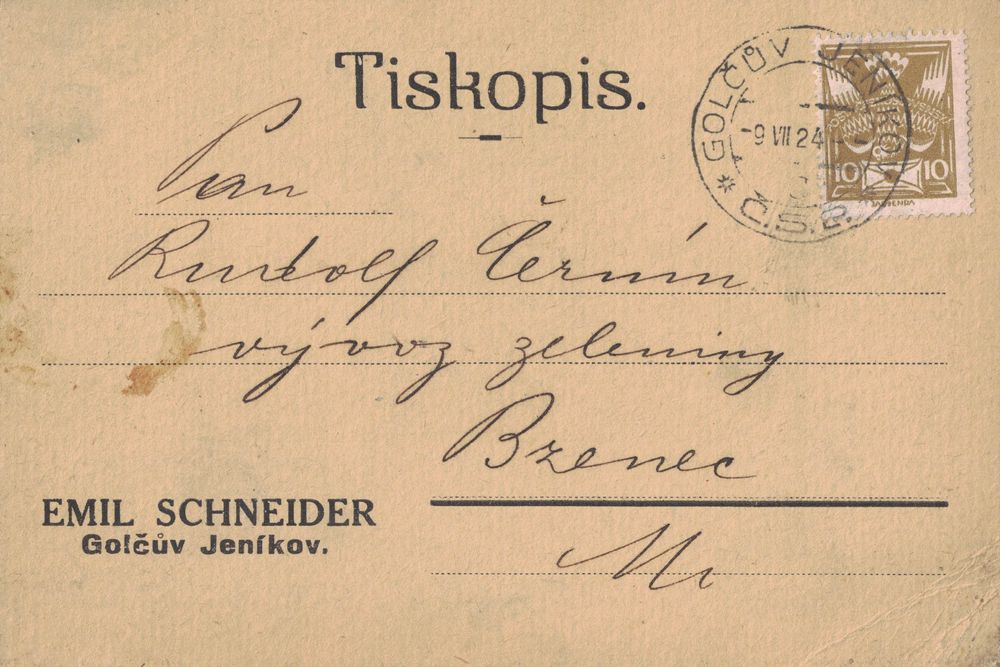 Tiskopis.
* GOLČŮV JENÍKOV *
-9 VII 24
Č.S.R.
10 10
Pan
Rudolf Černín
vývoz zeleniny
Bzenec
EMIL SCHNEIDER
Golčův Jeníkov.